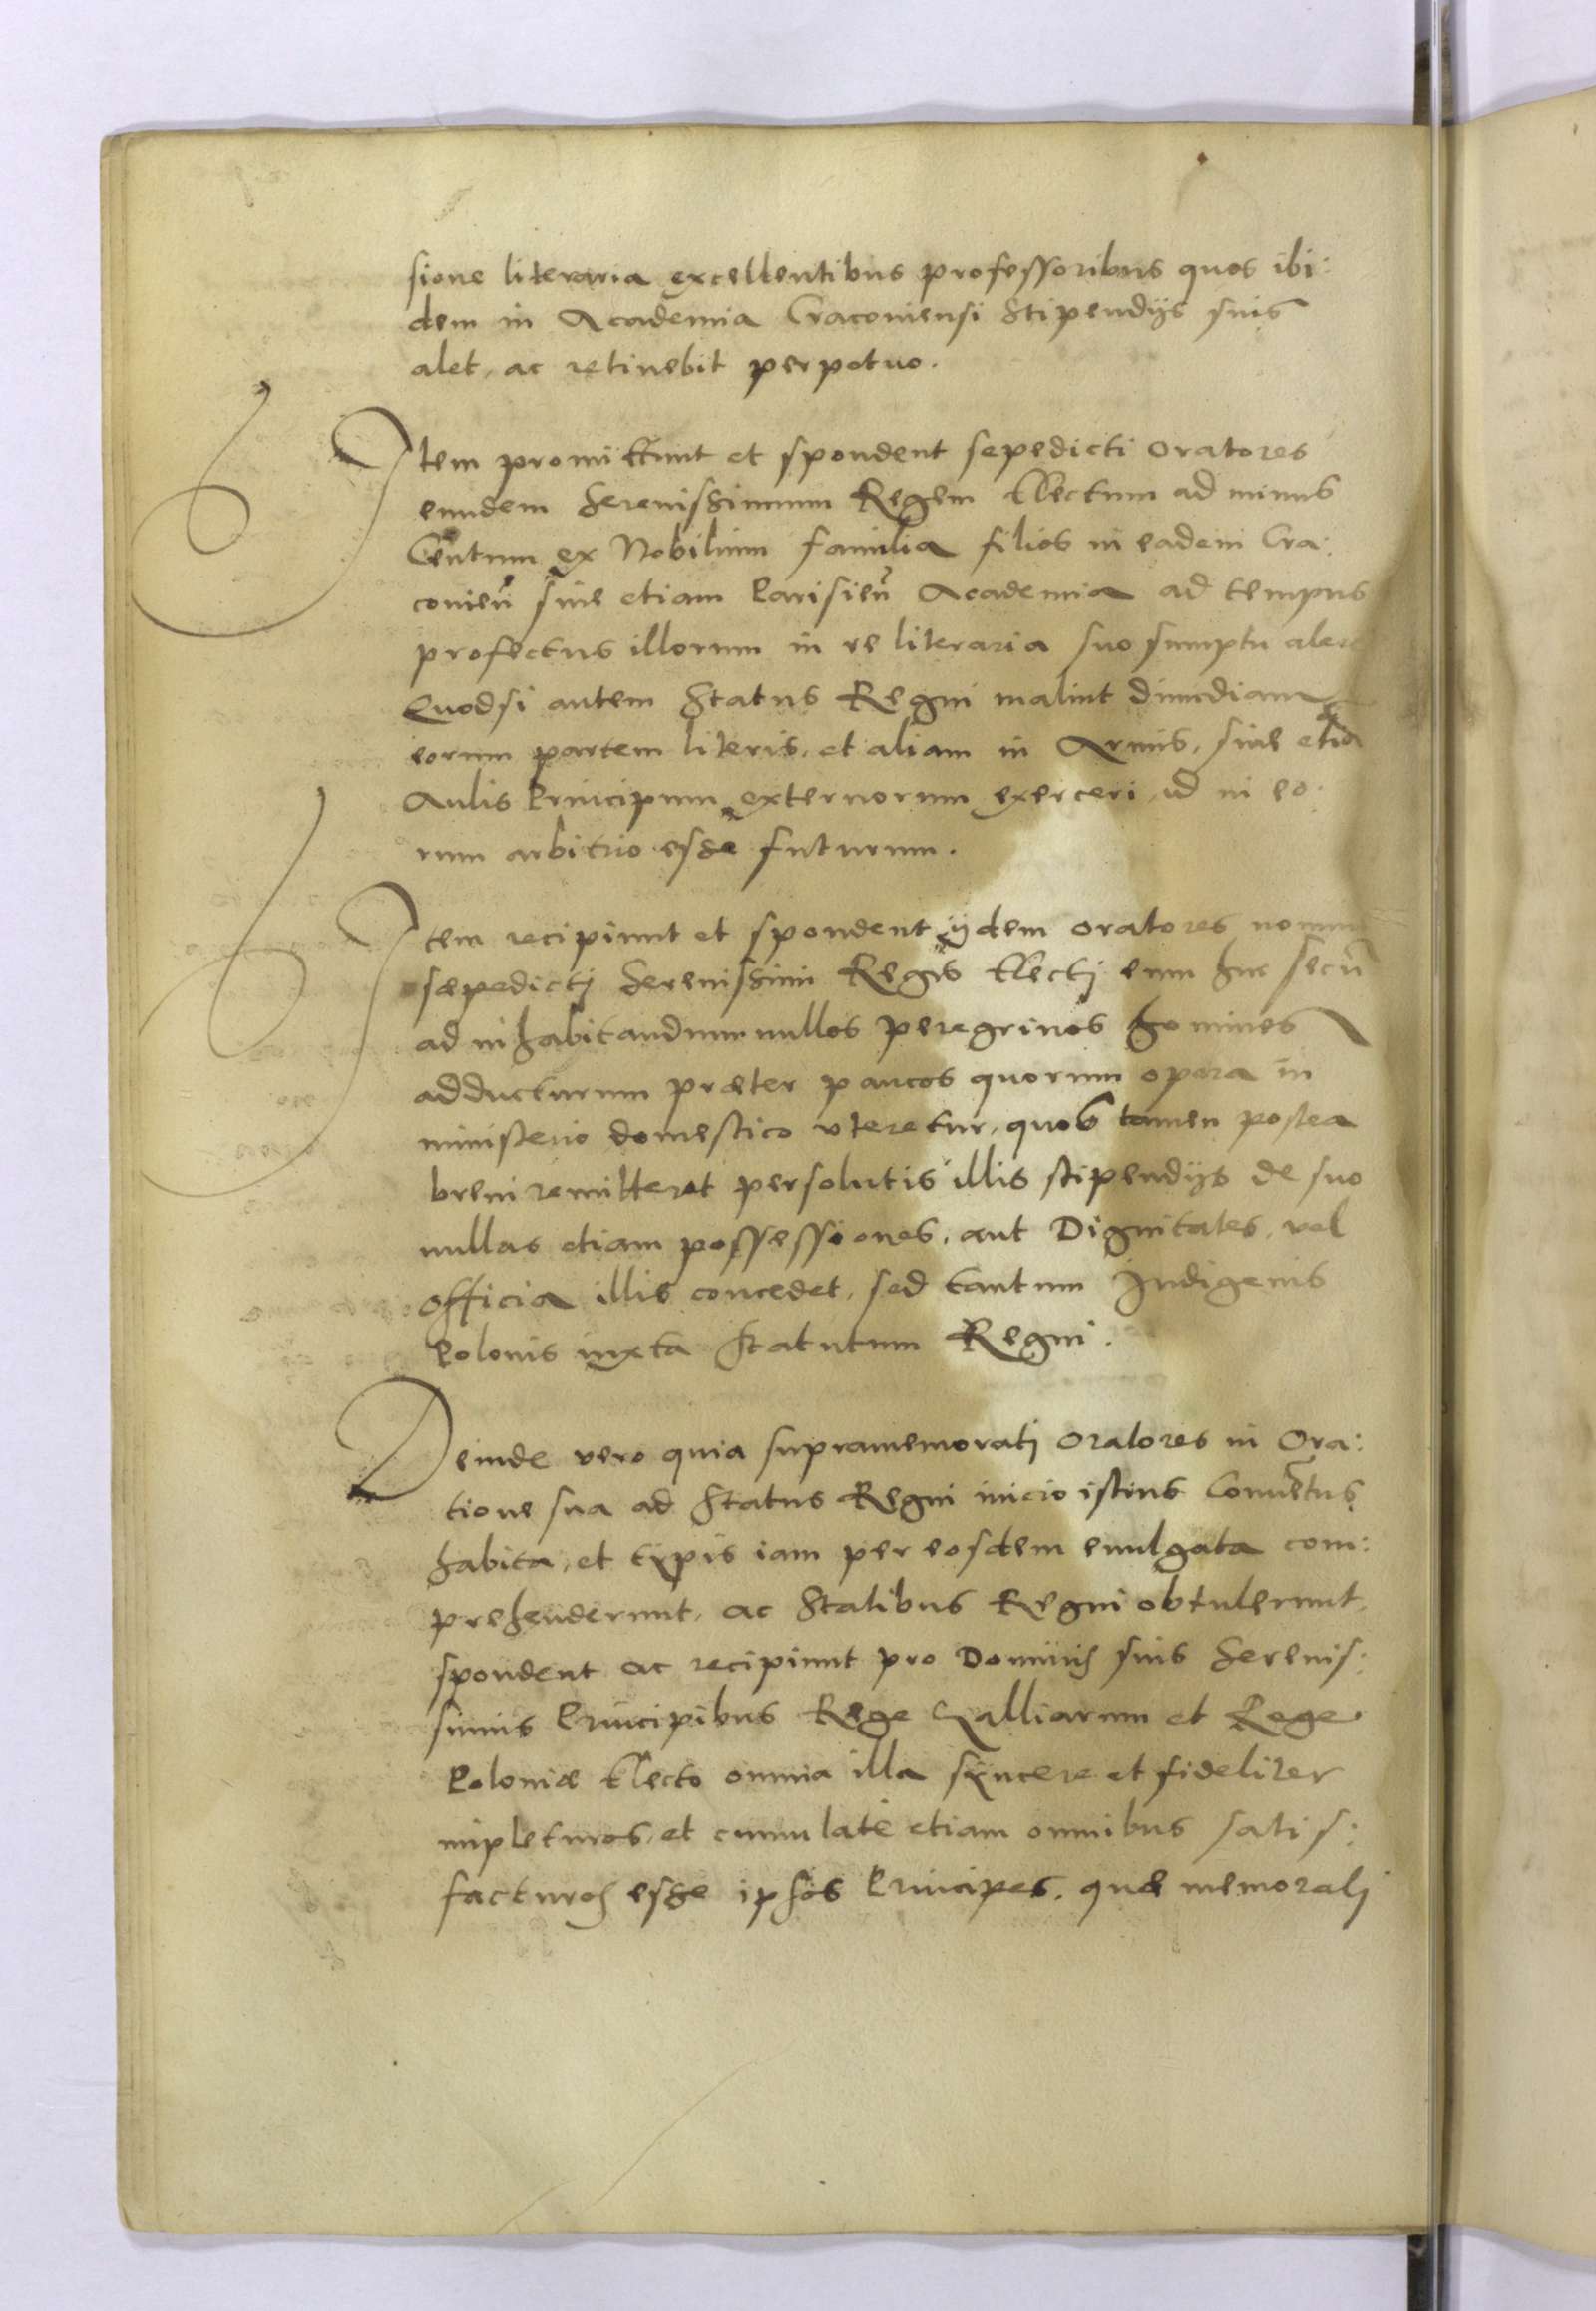 sione literaria excellentibus professoribus quos ibi:
dem in Academia Cracouiensi Stipendijs suis
alet, ac retinebit perpetuo.
Item promittunt et spondent sepedicti Oratores
eundem Serenissimum Regem Electum ad minus
Centum ex Nobilium familia filios in eadem Cra:
couien̄ siue etiam Parisien̄ Academia ad tempus
profectus illorum in re literaria suo sumptu
Quodsi autem Status Regni malint dimediam
eorum partem literis, et aliam in Armis, siue etiā
Aulis Principum externorum exerceri, id in eo:
rum arbitrio esse futurum.
Item recipiunt et spondent ijdem Oratores
sæpedictj Serenissimi Regis Electj eum huc secū
ad inhabitandum nullos peregrinos homines
adducturum præter paucos quorum opera in
ministerio domestico vteretur, quos tamen postea
breui remitteret persolutis illis stipendijs de suo
nullas etiam possessiones, aut Dignitates, vel
officia illis concedet, sed tantum Indigenis
Polonis iuxta Statutum Regni.
Deinde vero quia supramemoratj Oratores in Ora:
tione sua ad Status Regni inicio istius Conuētus
habita, et typis iam per eosdem euulgata com:
prehenderunt, ac Statibus Regni obtulerunt,
spondent ac recipiunt pro Dominis suis Serenis:
simis Principibus Rege Galliarum et Rege
Poloniæ Electo omnia illa syncere et fideliter
impleturos, et cumulate etiam omnibus satis:
facturos esse ipsos Principes, quæ memoratj